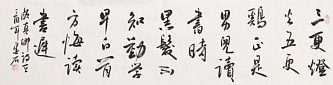 三更燈
火五更
鷄正是
男兒讀
書時
黑髮不
知勤学
早白首
方悔讀
書遲